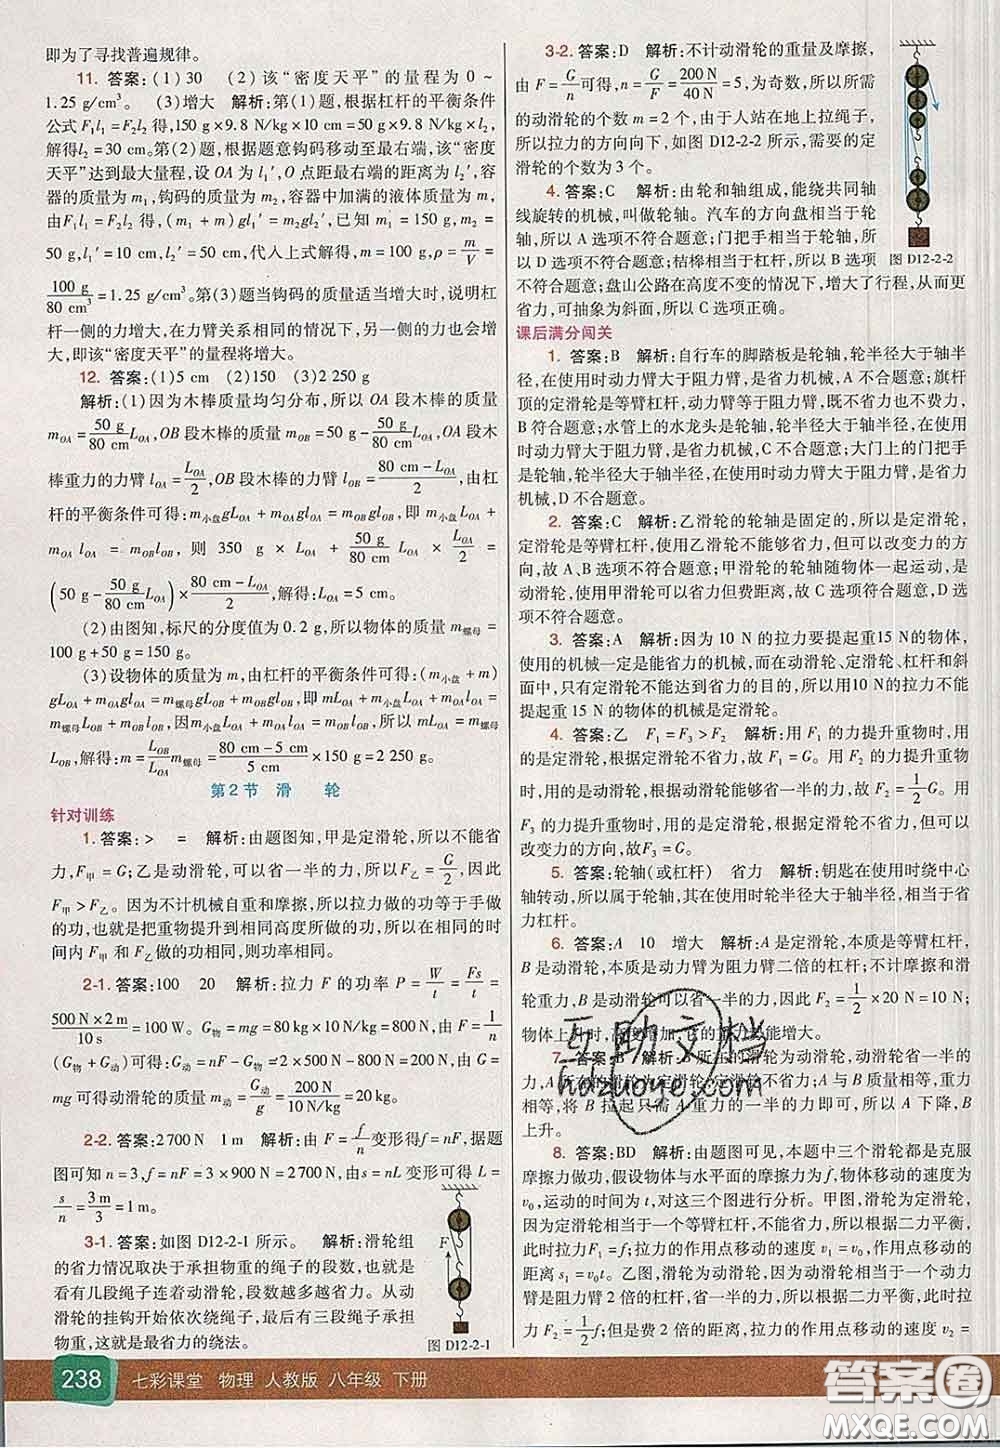 即为了寻找普遍规律。
11. 答案:(1)30 (2)该“密度天平”的量程为 0 ~
1.25 g/cm³。 (3)增大 解析:第(1)题,根据杠杆的平衡条件
公式 F₁l₁ = F₂l₂ 得,150 g×9.8 N/kg×10 cm = 50 g×9.8 N/kg×l₂,
解得 l₂ = 30 cm。第(2)题,根据题意钩码移至最右端,该“密度
天平”达最大量程,设 OA 为 l₁′,O 点距最右端的距离为 l₂′,容
器的质量为 m₁,钩码的质量为 m₂,容器中加满的液体质量为 m,
由 F₁l₁ = F₂l₂ 得,(m₁ + m)gl₁′ = m₂gl₂′,已知 m₁ = 150 g,m₂ =
50 g,l₁′ = 10 cm,l₂′ = 50 cm,代入上式解得,m = 100 g,ρ = m/V =
100 g/80 cm³ = 1.25 g/cm³。第(3)题当钩码的质量适当增大时,说明杠
杆一侧的力增大,在力臂关系相同的情况下,另一侧的力也会增
大,即该“密度天平”的量程将增大。
12. 答案:(1)5 cm (2)150 (3)2 250 g
解析:(1)因为木棒质量均匀分布,所以 OA 段木棒的质量
m_OA = 50 g/80 cm L_OA,OB 段木棒的质量 m_OB = 50 g - 50 g/80 cm L_OA,OA 段木
棒重力的力臂 l_OA = L_OA/2,OB 段木棒的力臂 l_OB = (80 cm - L_OA)/2,由杠
杆的平衡条件可得:m小盘gL_OA + m_OA gl_OA = m_OB gl_OB,即 m小盘L_OA +
m_OA l_OA = m_OB l_OB,则 350 g × L_OA + 50 g/80 cm L_OA × L_OA/2 =
(50 g - 50 g/80 cm L_OA) × (80 cm - L_OA)/2,解得:L_OA = 5 cm。
(2)由图知,标尺的分度值为 0.2 g,所以物体的质量 m螺母 =
100 g +50 g =150 g。
(3)设物体的质量为 m,由杠杆的平衡条件可得:(m小盘 + m)
gL_OA + m_OA gl_OA = m螺母gL_OB + m_OB gl_OB,即 mL_OA + m小盘L_OA + m_OA l_OA =
m螺母L_OB + m_OB l_OB,因 m小盘L_OA + m_OA l_OA = m_OB l_OB,所以 mL_OA = m螺母
L_OB,解得:m = L_OB/L_OA m螺母 = (80 cm - 5 cm)/5 cm × 150 g = 2 250 g。
第 2 节 滑 轮
针对训练
1. 答案: > = 解析:由题图知,甲是定滑轮,所以不能省
力,F甲 = G;乙是动滑轮,可以省一半的力,所以 F乙 = G/2,因此
F甲 > F乙。因为不计机械自重和摩擦,所以拉力做的功等于手做
的功,也就是把重物提升到相同高度所做的功,所以在相同的时
间内 F甲 和 F乙 做的功相同,则功率相同。
2-1. 答案:100 20 解析:拉力 F 的功率 P = W/t = Fs/t =
500 N × 2 m/10 s = 100 W。G物 = mg = 80 kg × 10 N/kg = 800 N,由 F = 1/n
(G物 + G动)可得:G动 = nF - G物 = 2 × 500 N - 800 N = 200 N,由 G =
mg 可得动滑轮的质量 m动 = G动/g = 200 N/10 N/kg = 20 kg。
2-2. 答案:2 700 N 1 m 解析:由 F = f/n 变形得 f = nF,据题
图可知 n = 3,f = nF = 3 × 900 N = 2 700 N;由 s = nL 变形可得 L =
s/n = 3 m/3 = 1 m。
3-1. 答案:如图 D12-2-1 所示。 解析:滑轮组
的省力情况取决于承担物重的绳子的段数,也就是
看有几段绳子连着动滑轮,段数越多越省力。从动
滑轮的挂钩开始依次绕绳子,最后有三段绳子承担
物重,这就是最省力的绕法。
F
图 D12-2-1
3-2. 答案:D 解析:不计动滑轮的重量及摩擦,
由 F = G/n 可得,n = G/F = 200 N/40 N = 5,为奇数,所以所用
的动滑轮的个数 m = 2 个,由于人站在地上拉绳子,
所以拉力的方向向下,如图 D12-2-2 所示,需要的定
滑轮的个数为 3 个。
4. 答案:C 解析:由轮和轴组成,能绕共同
轴线旋转的机械,叫做轮轴。汽车的方向盘相当于轮轴,
所以 A 选项不符合题意;门把手相当于轮轴,所以 D
选项不符合题意;桔槔相当于杠杆,所以 B 选项
不符合题意;盘山公路在高度不变的情况下,增大了行程,从而更
省力,可抽象为斜面,所以 C 选项正确。
图 D12-2-2
课后满分闯关
1. 答案:B 解析:自行车的脚踏板是轮轴,轮半径大于轴半
径,在使用时动力臂大于阻力臂,是省力机械,A 不合题意;旗杆
顶的定滑轮是等臂杠杆,动力臂等于阻力臂,既不省力也不费力,
B 符合题意;水管上的水龙头是轮轴,轮半径大于轴半径,在使用
时动力臂大于阻力臂,是省力机械,C 不合题意;大门上的门把手
是轮轴,轮半径大于轴半径,在使用时动力臂大于阻力臂,是省力
机械,D 不合题意。
2. 答案:C 解析:乙滑轮的轮轴是固定的,所以是定滑轮,
定滑轮是等臂杠杆,使用乙滑轮不能够省力,但可以改变力的方
向,所以 A、B 选项不符合题意;甲滑轮的轮轴随物体一起运动,是
动滑轮,使用甲滑轮能够省力,但要费距离,故 C 选项符合题意、D
选项不符合题意。
3. 答案:A 解析:因为 10 N 的拉力要提起重15 N的物体,
使用的机械一定是能省力的机械,而在动滑轮、定滑轮、杠杆和斜
面中,只有定滑轮不能达到省力的目的,所以用10 N的拉力不能
提起重 15 N 的物体的机械是定滑轮。
4. 答案:乙 F₁ = F₃ > F₂ 解析:用 F₁ 的力提升重物时,无
论方向如何,根据定滑轮不能省力,故 F₁ = G。用 F₂ 的力提升重
物时,根据动滑轮能够省一半的力,故 F₂ = 1/2 G。用
F₃ 的力提升重物时,根据定滑轮,根据定滑轮不能省力,但可以
改变力的方向,故F₃ = G。
5. 答案:轮轴(或杠杆) 省力 解析:钥匙在使用时绕中心
轴转动,所以属于轮轴,其在使用时轮半径大于轴半径,相当于省
力杠杆。
6. 答案:A 10 增大 解析:A 是定滑轮,本质是等臂杠杆;
B 是动滑轮,本质是动力臂为阻力臂二倍的杠杆;不计摩擦和滑
轮重力,B 是动滑轮可以省一半的力,因此 F = 1/2 × 20 N = 10 N;
物体上升时,高度增加,它的重力势能增大。
7. 答案:B 解析:B 所在的滑轮为动滑轮,动滑轮省一半的
力,A 所在的滑轮为定滑轮,定滑轮不省力;A、B 两物体的重力
相等,将 B 拉起只需 A 重力的一半的力即可,所以 A 下降,B
上升。
8. 答案:BD 解析:由题图可见,本题中三个滑轮都是克服
摩擦力做功,假设物体与水平面的摩擦力为 f,物体移动的速度为
v₀,运动的时间为 t,对这三个图进行分析。甲图,滑轮为定滑轮,
因为定滑轮相当于一个等臂杠杆,不能省力,所以根据二力平衡,
此时拉力F₁ = f;拉力的作用点移动的速度 v₁ = v₀,拉力的作用点
移动的距离 s₁ = v₀t。乙图,滑轮为动滑轮,因为动滑轮相当于一个动力
臂是阻力臂 2 倍的杠杆,省一半的力,所以根据二力平衡,此时的
拉力 F₂ = 1/2 f;但是费 2 倍的距离,所以拉力的作用点移动的速度 v₂ =
238 七彩课堂 物理 人教版 八年级 下册
互助文档
hdzuoye.com
答案圈
MXQE.COM